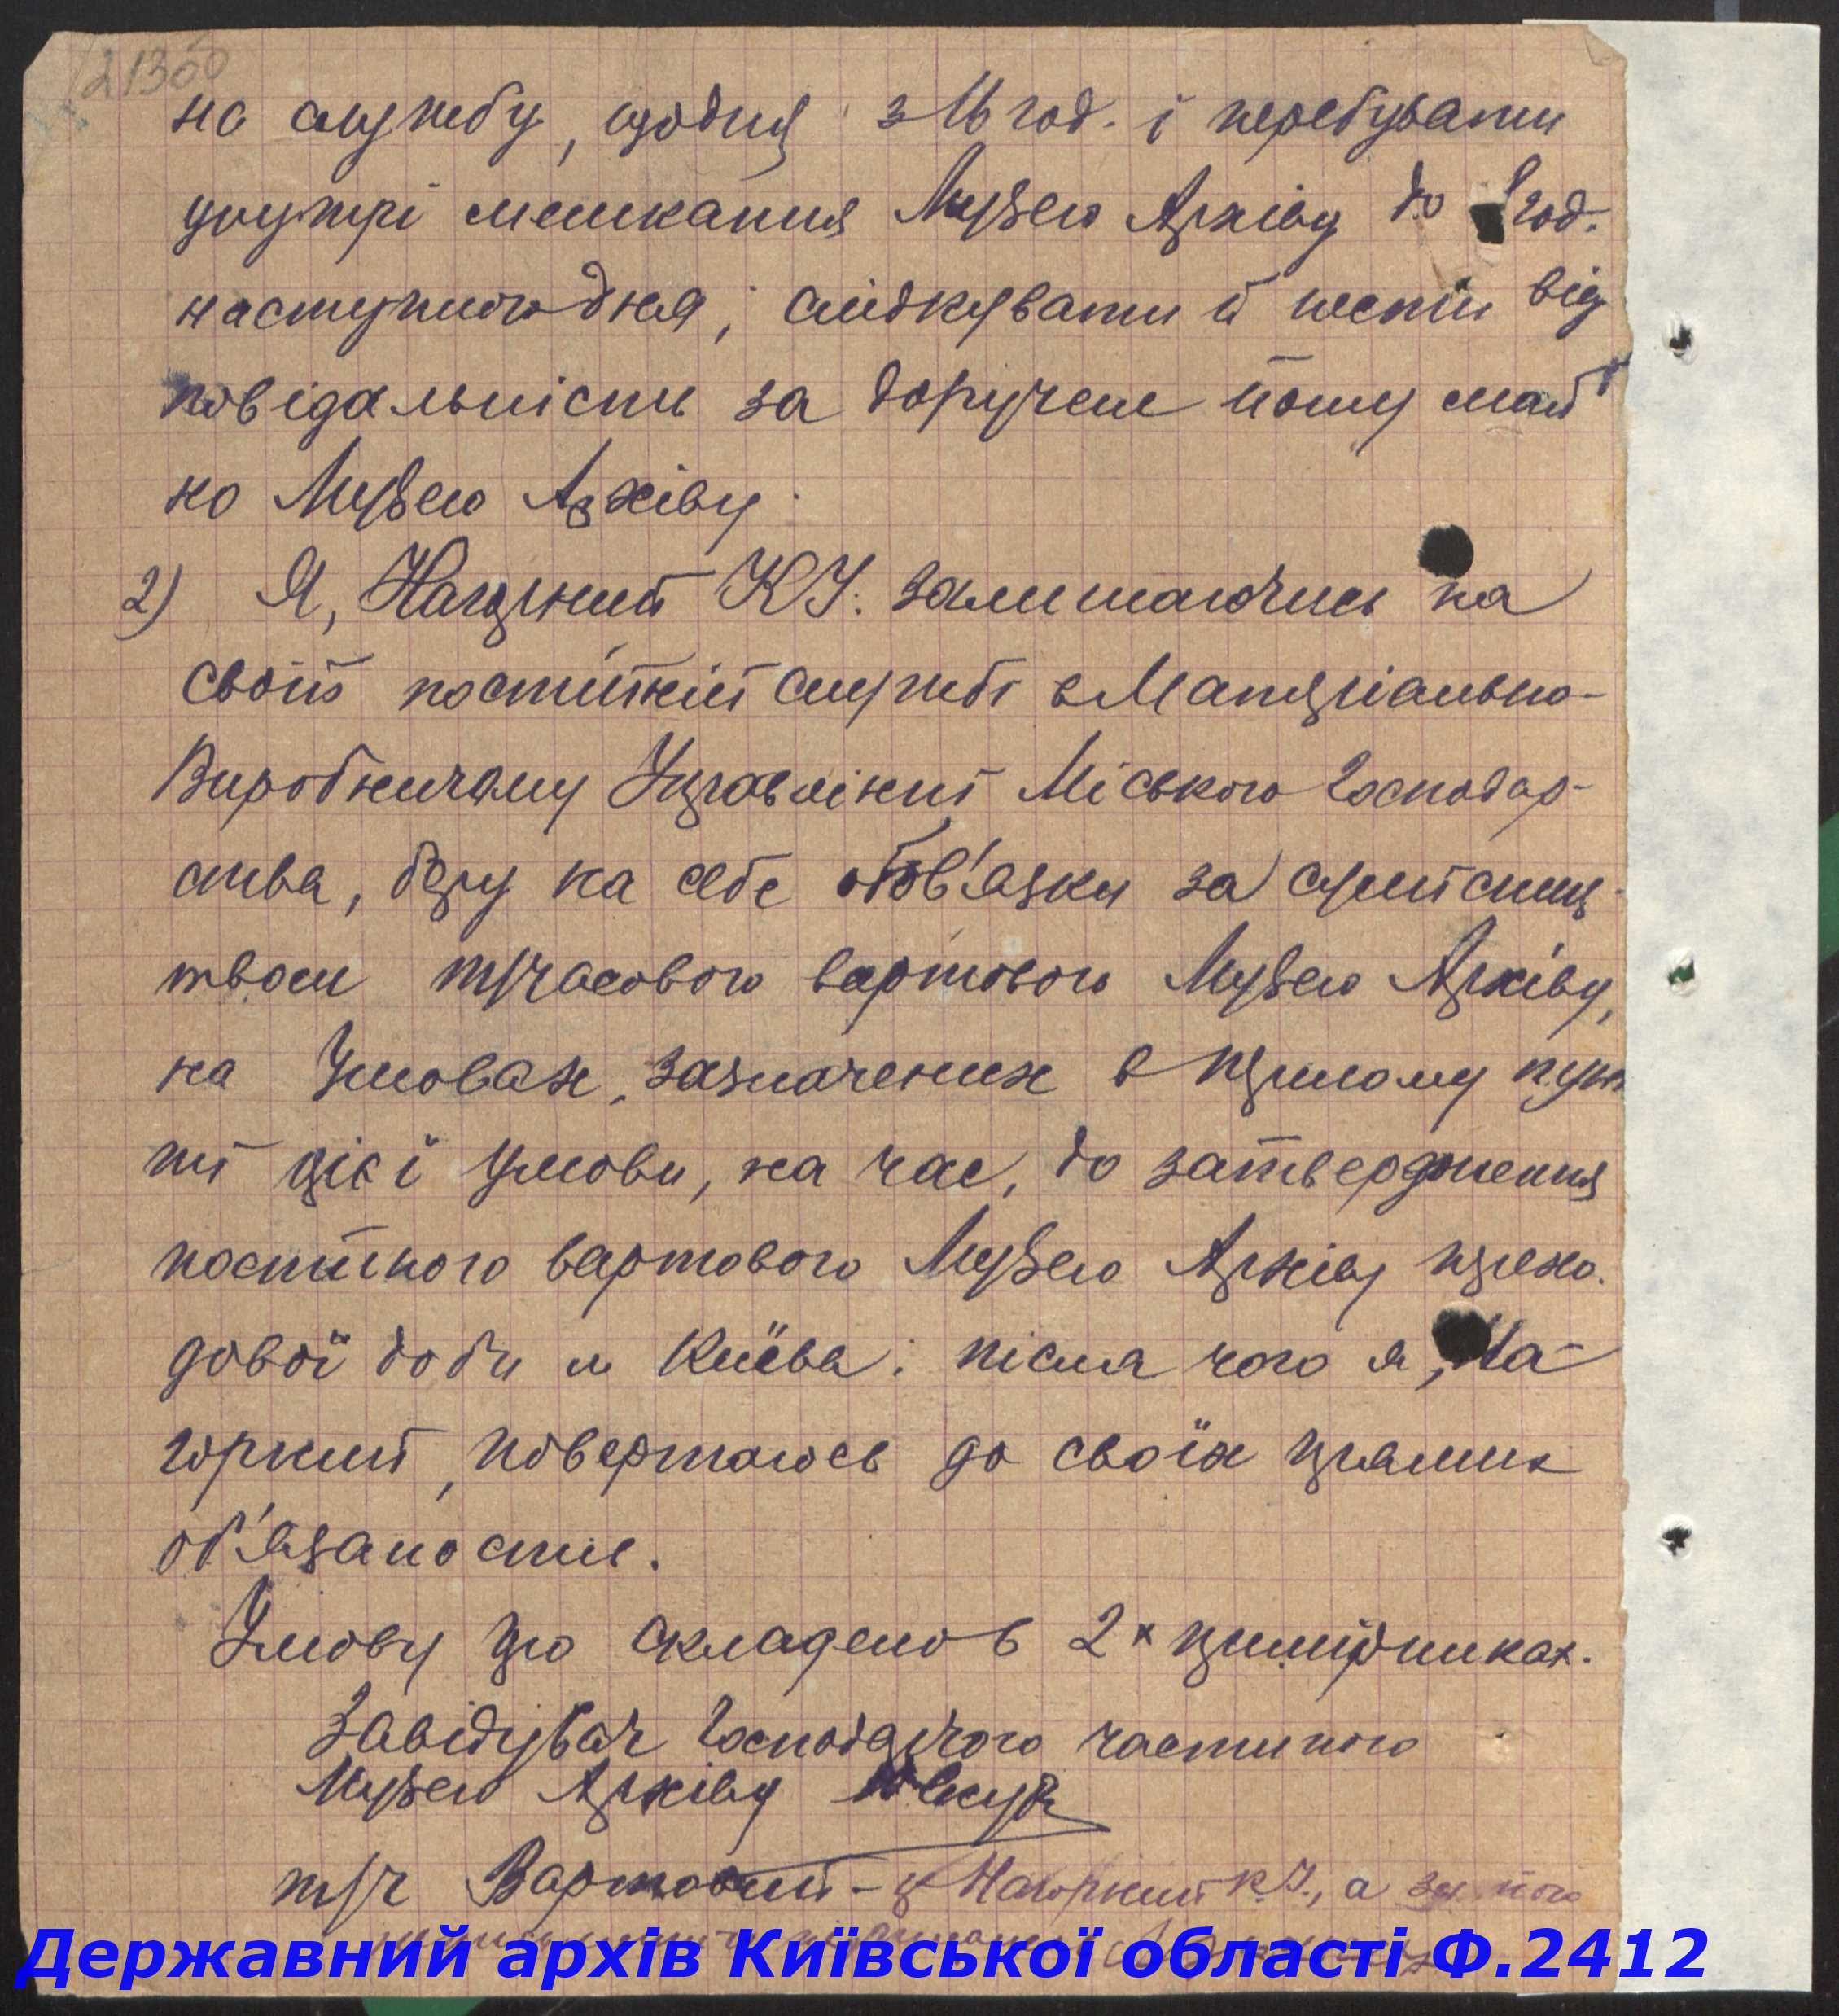 21300
на службу, щодня з 16 год. і перебувати
унутрі мешкання Музею Архіву до 8 год.
наступного дня; слідкувати й нести від
повідальність за доручене йому май
но Музею Архіву.
2) Я, Нагорний К.У. залишаючись на
своїй постійній службі в Матеріально-
Виробничому Управлінні Міського Господар-
ства, беру на себе обов'язки за сумісниц-
твом т/часового вартового Музею Архіву,
на Умовах, зазначених в першому пунк
ті цієї Умови, на час, до затвердження
постійного вартового Музею Архіву перехо.
дової доби м Киёва; після чого я, На-
горний, повертаюсь до своїх прямих
об'язаностів.
Умову цю складено в 2х примірниках.
Завідувач Господарчого частиною
Музею Архіву
т/ч Вартовий - Нагорний К.У., а за його
Державний архів Київської області Ф.2412